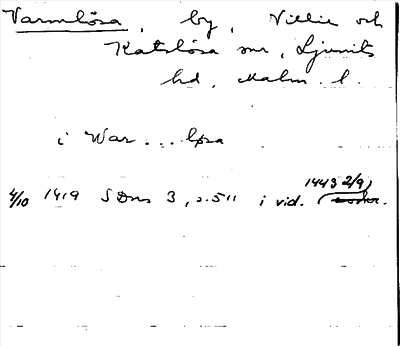 Varmlösa, by, Villie och
Katslösa snr, Ljunits
hd, Malm. l.
i War...løsa
4/10 1419 SDns 3, s. 511 i vid. (1443 2/9)